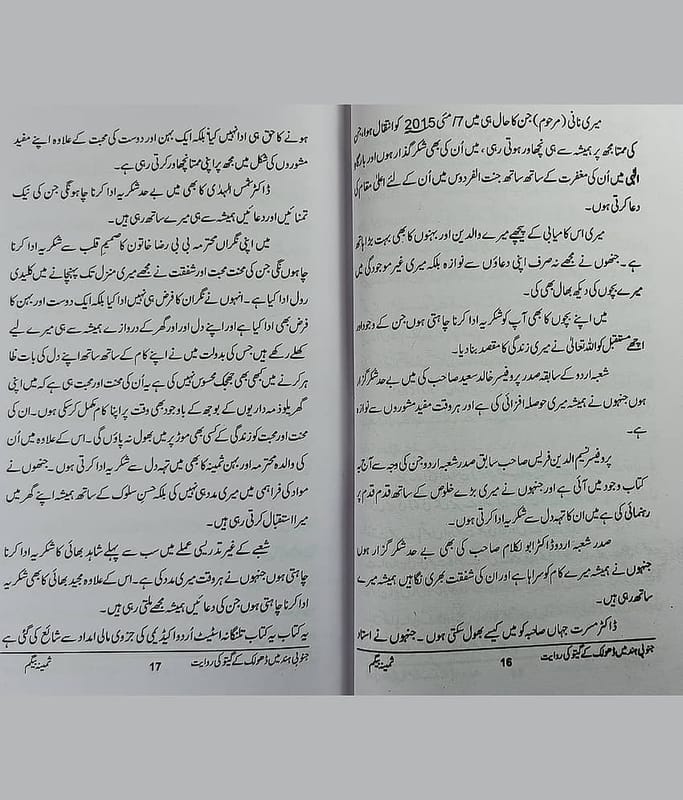 میری نانی (مرحوم) جن کا حال ہی میں 7/مئی 2015 کو انتقال ہوا، جن
کی ممتا مجھ پر ہمیشہ سے ہی نچھاور ہوتی رہی، میں اُن کی بھی شکر گذار ہوں اور بارگاہ
الٰہی میں اُن کی مغفرت کے ساتھ ساتھ جنت الفردوس میں اُن کے لئے اعلیٰ مقام کی
دعا کرتی ہوں۔
میری اس کامیابی کے پیچھے میرے والدین اور بہنوں کا بھی بہت بڑا ہاتھ
ہے۔ جنھوں نے مجھے نہ صرف اپنی دعاؤں سے نوازہ بلکہ میری غیر موجودگی میں
میرے بچوں کی دیکھ بھال بھی کی۔
میں اپنے بچوں کا بھی آپ کو شکریہ ادا کرنا چاہتی ہوں جن کے وجود اور
اچھے مستقبل کو اللہ تعالیٰ نے میری زندگی کا مقصد بنا دیا۔
شعبہ اردو کے سابقہ صدر پروفیسر خالد سعید صاحب کی میں بے حد شکر گزار
ہوں جنہوں نے ہمیشہ میری حوصلہ افزائی کی ہے اور ہر وقت مفید مشوروں سے نوازہ
ہے۔
پروفیسر نسیم الدین فریس صاحب سابق صدر شعبہ اردو جن کی وجہ سے آج یہ
کتاب وجود میں آئی ہے اور جنہوں نے میری بڑے خلوص کے ساتھ قدم قدم پر
رہنمائی کی ہے میں ان کا تہہ دل سے شکریہ ادا کرتی ہوں۔
صدر شعبہ اردو ڈاکٹر ابو لکلام صاحب کی بھی بے حد شکر گزار ہوں
جنہوں نے ہمیشہ میرے کام کو سراہا ہے اور ان کی شفقت بھری نگاہیں ہمیشہ میرے
ساتھ رہی ہیں۔
ڈاکٹر مسرت جہاں صاحبہ کو میں کیسے بھول سکتی ہوں۔ جنہوں نے استاد
جنوبی ہند میں ڈھولک کے گیتو کی روایت 16 ثمینہ بیگم
ہونے کا حق ہی ادا نہیں کیا بلکہ ایک بہن اور دوست کی محبت کے علاوہ اپنے مفید
مشوروں کی شکل میں مجھ پر اپنی ممتا نچھاور کرتی رہی ہے۔
ڈاکٹر شمس الہدیٰ کا بھی میں بے حد شکریہ ادا کرنا چاہونگی جن کی نیک
تمنائیں اور دعائیں ہمیشہ سے ہی میرے ساتھ رہی ہیں۔
میں اپنی نگراں محترمہ بی بی رضا خاتون کا صمیم قلب سے شکریہ ادا کرنا
چاہوں گی جن کی محنت محبت اور شفقت نے مجھے میری منزل تک پہنچانے میں کلیدی
رول ادا کیا ہے۔ انہوں نے نگران کا فرض ہی نہیں ادا کیا بلکہ ایک دوست اور بہن کا
فرض بھی ادا کیا ہے اور اپنے دل اور اور گھر کے دروازے ہمیشہ سے ہی میرے لیے
کھلے رکھے ہیں جس کی بدولت میں نے اپنے کام کے ساتھ ساتھ اپنے دل کی بات ظا
ہر کرنے میں کبھی بھی جھجک محسوس نہیں کی ہے یہ اُن کی محنت اور محبت ہی ہے کہ میں اپنی
گھریلو ذمہ داریوں کے بوجھ کے باوجود بھی وقت پر اپنا کام مکمل کر سکی ہوں۔ ان کی
محنت اور محبت کو زندگی کے کسی بھی موڑ پر میں بھول نہ پاؤں گی۔ اس کے علاوہ میں اُن
کی والدہ محترمہ اور بہن ثمینہ کا بھی میں تہہ دل سے شکریہ ادا کرتی ہوں۔ جنھوں نے
مواد کی فراہمی میں میری مدد ہی نہیں کی بلکہ حسن سلوک کے ساتھ ہمیشہ اپنے گھر میں
میرا استقبال کرتی رہی ہیں۔
شعبے کے غیر تدریسی عملے میں سب سے پہلے شاہد بھائی کا شکریہ ادا کرنا
چاہتی ہوں جنہوں نے ہر وقت میری مدد کی ہے۔ اس کے علاوہ مجید بھائی کا بھی شکریہ
ادا کرنا چاہتی ہوں جن کی دعائیں ہمیشہ مجھے ملتی رہی ہیں۔
یہ کتاب یہ کتاب تلنگانہ اسٹیٹ اُردو اکیڈیمی کی جزوی مالی امداد سے شائع کی گئی ہے
جنوبی ہند میں ڈھولک کے گیتو کی روایت 17 ثمینہ بیگم